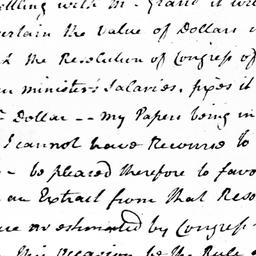 with Mr. Grand it will
the Value of Dollars
the Resolution of Congress of
ministers Salaries, fixes it
Dollar -- my Papers being in
I cannot have Recourse to
- be pleased therefore to favo
an Extract from that Reso
as estimated by Congress
this Occasion be the Rule